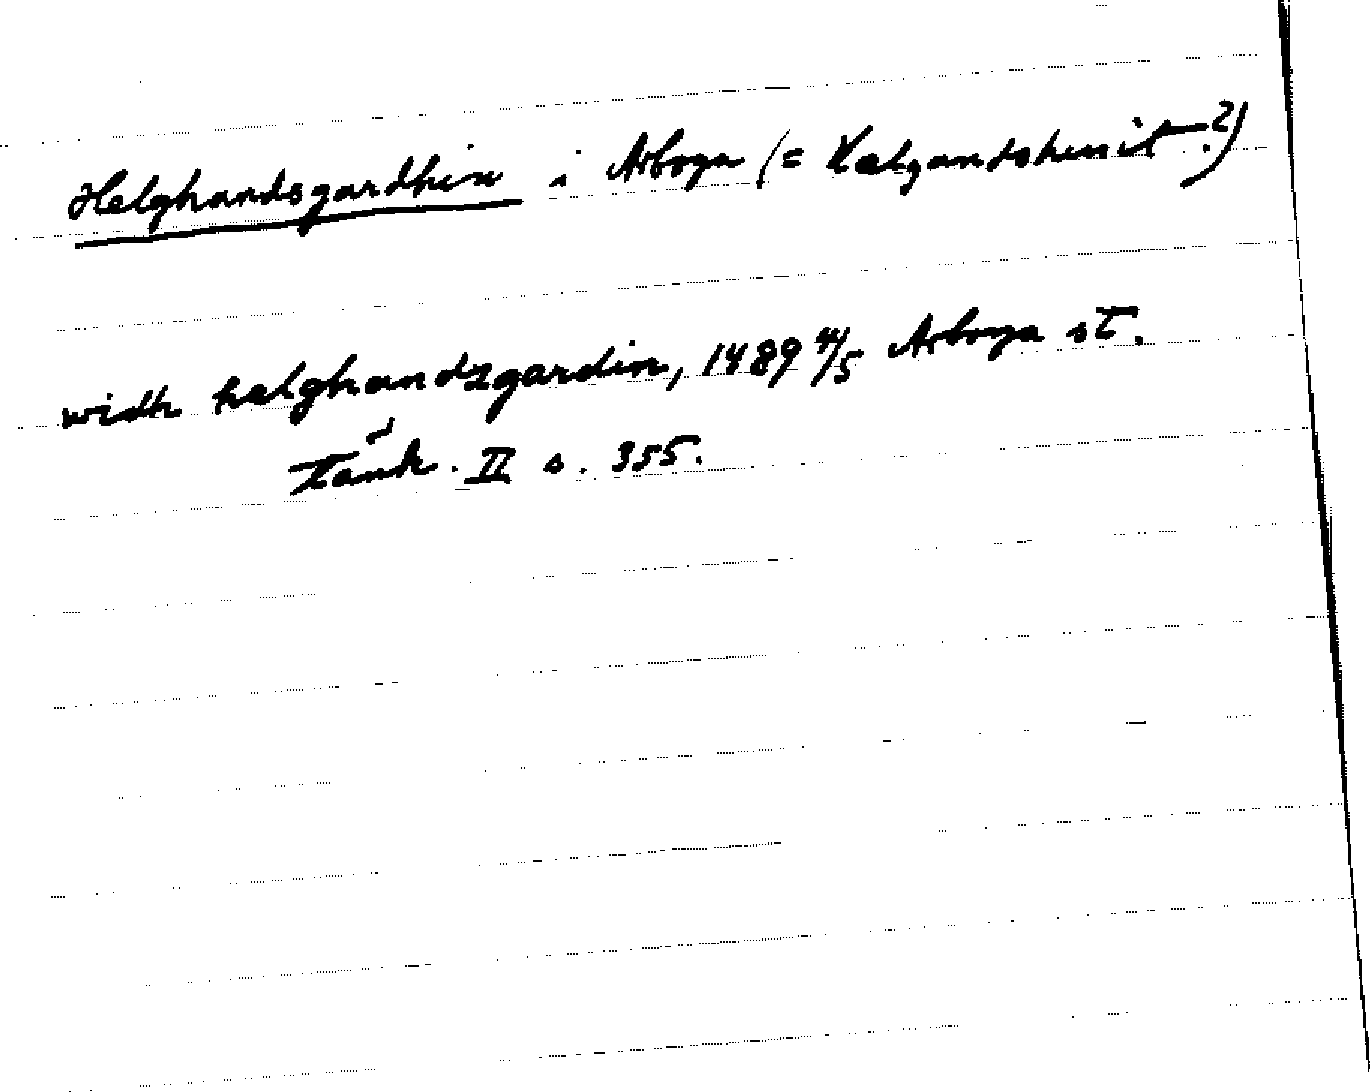 Helghandsgardhin i Arboga (= Helgandshuset?)
widh helghandzgardin, 1489 4/5 Arboga st.
tänk. II s. 355.